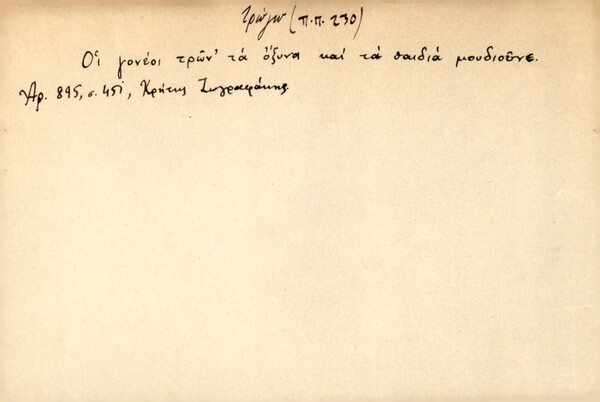 τρώγω (Π.Π. 230)
Οἱ γονέοι τρῶν' τά ὄξυνα καί τά παιδιά μουδιοῦνε.
Ἀρ. 895, σ. 451, Κρήτης Ζωγραφάκης.